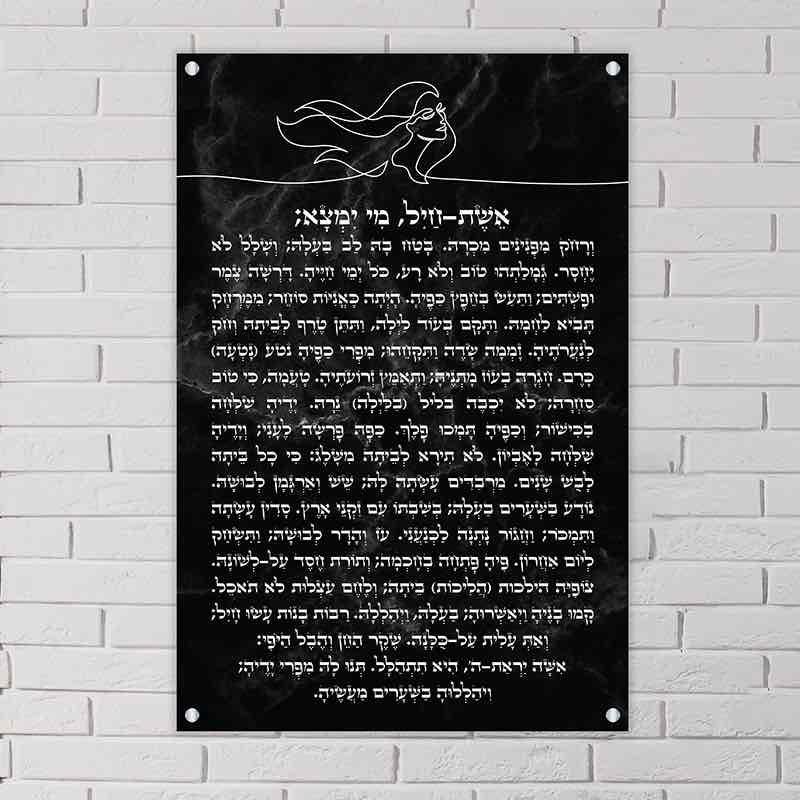 אֵשֶׁת-חַיִל, מִי יִמְצָא;
וְרָחֹק מִפְּנִינִים מִכְרָהּ. בָּטַח בָּהּ לֵב בַּעְלָהּ; וְשָׁלָל לֹא
יֶחְסָר. גְּמָלַתְהוּ טוֹב וְלֹא רָע, כֹּל יְמֵי חַיֶּיהָ. דָּרְשָׁה צֶמֶר
וּפִשְׁתִּים; וַתַּעַשׂ בְּחֵפֶץ כַּפֶּיהָ. הָיְתָה כָּאֳנִיּוֹת סוֹחֵר; מִמֶּרְחָק
תָּבִיא לַחְמָהּ. וַתָּקָם בְּעוֹד לַיְלָה, וַתִּתֵּן טֶרֶף לְבֵיתָהּ וְחֹק
לְנַעֲרֹתֶיהָ. זָמְמָה שָׂדֶה וַתִּקָּחֵהוּ; מִפְּרִי כַפֶּיהָ נטע (נָטְעָה)
כָּרֶם. חָגְרָה בְעוֹז מָתְנֶיהָ; וַתְּאַמֵּץ זְרוֹעֹתֶיהָ. טָעֲמָה, כִּי טוֹב
סַחְרָהּ; לֹא יִכְבֶּה בליל (בַלַּיְלָה) נֵרָהּ. יָדֶיהָ שִׁלְּחָה
בַכִּישׁוֹר; וְכַפֶּיהָ תָּמְכוּ פָלֶךְ. כַּפָּהּ פָּרְשָׂה לֶעָנִי; וְיָדֶיהָ
שִׁלְּחָה לָאֶבְיוֹן. לֹא תִירָא לְבֵיתָהּ מִשָּׁלֶג: כִּי כָל בֵּיתָהּ
לָבֻשׁ שָׁנִים. מַרְבַדִּים עָשְׂתָה לָּהּ; שֵׁשׁ וְאַרְגָּמָן לְבוּשָׁהּ.
נוֹדָע בַּשְּׁעָרִים בַּעְלָהּ; בְּשִׁבְתּוֹ עִם זִקְנֵי אָרֶץ. סָדִין עָשְׂתָה
וַתִּמְכֹּר; וַחֲגוֹר נָתְנָה לַכְּנַעֲנִי. עֹז וְהָדָר לְבוּשָׁהּ; וַתִּשְׂחַק
לְיוֹם אַחֲרוֹן. פִּיהָ פָּתְחָה בְחָכְמָה; וְתוֹרַת חֶסֶד עַל-לְשׁוֹנָהּ.
צוֹפִיָּה הילכות (הֲלִיכוֹת) בֵּיתָהּ; וְלֶחֶם עַצְלוּת לֹא תֹאכֵל.
קָמוּ בָנֶיהָ וַיְאַשְּׁרוּהָ; בַּעְלָהּ, וַיְהַלְלָהּ. רַבּוֹת בָּנוֹת עָשׂוּ חָיִל;
וְאַתְּ עָלִית עַל-כֻּלָּנָה. שֶׁקֶר הַחֵן וְהֶבֶל הַיֹּפִי:
אִשָּׁה יִרְאַת-ה', הִיא תִתְהַלָּל. תְּנוּ לָהּ מִפְּרִי יָדֶיהָ;
וִיהַלְלוּהָ בַשְּׁעָרִים מַעֲשֶׂיהָ.